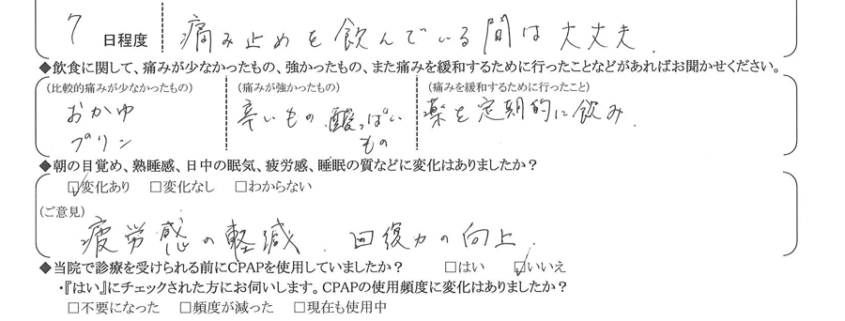 7 日程度 痛み止めを飲んでいる間は大丈夫.
◆飲食に関して、痛みが少なかったもの、強かったもの、また痛みを緩和するために行ったことなどがあればお聞かせください。
(比較的痛みが少なかったもの) (痛みが強かったもの) (痛みを緩和するために行ったこと)
おかゆ 辛いもの 酸っぱい 薬を定期的に飲み.
プリン もの
◆朝の目覚め、熟睡感、日中の眠気、疲労感、睡眠の質などに変化はありましたか？
☑変化あり □変化なし □わからない
(ご意見)
疲労感の軽減. 回復力の向上.
◆当院で診療を受けられる前にCPAPを使用していましたか？ □はい ☑いいえ
・『はい』にチェックされた方にお伺いします。CPAPの使用頻度に変化はありましたか？
□不要になった □頻度が減った □現在も使用中